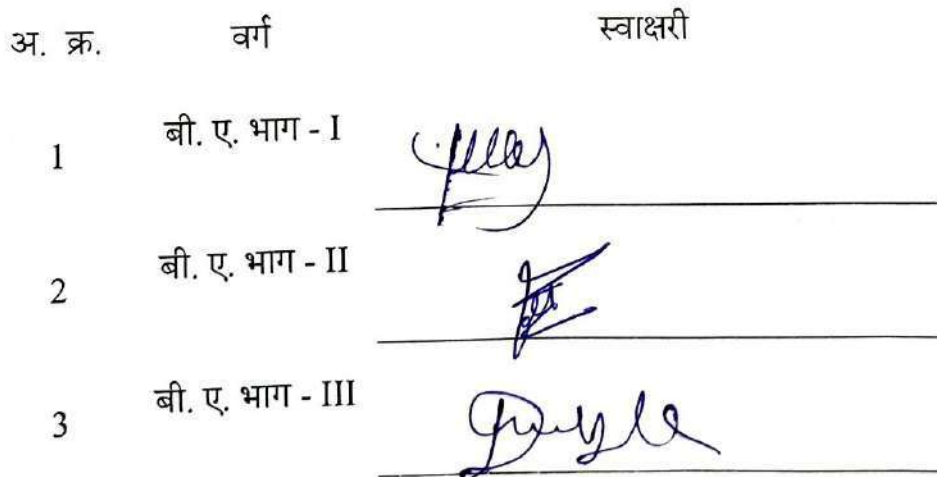 अ. क्र. वर्ग स्वाक्षरी
1 बी. ए. भाग - I
2 बी. ए. भाग - II
3 बी. ए. भाग - III